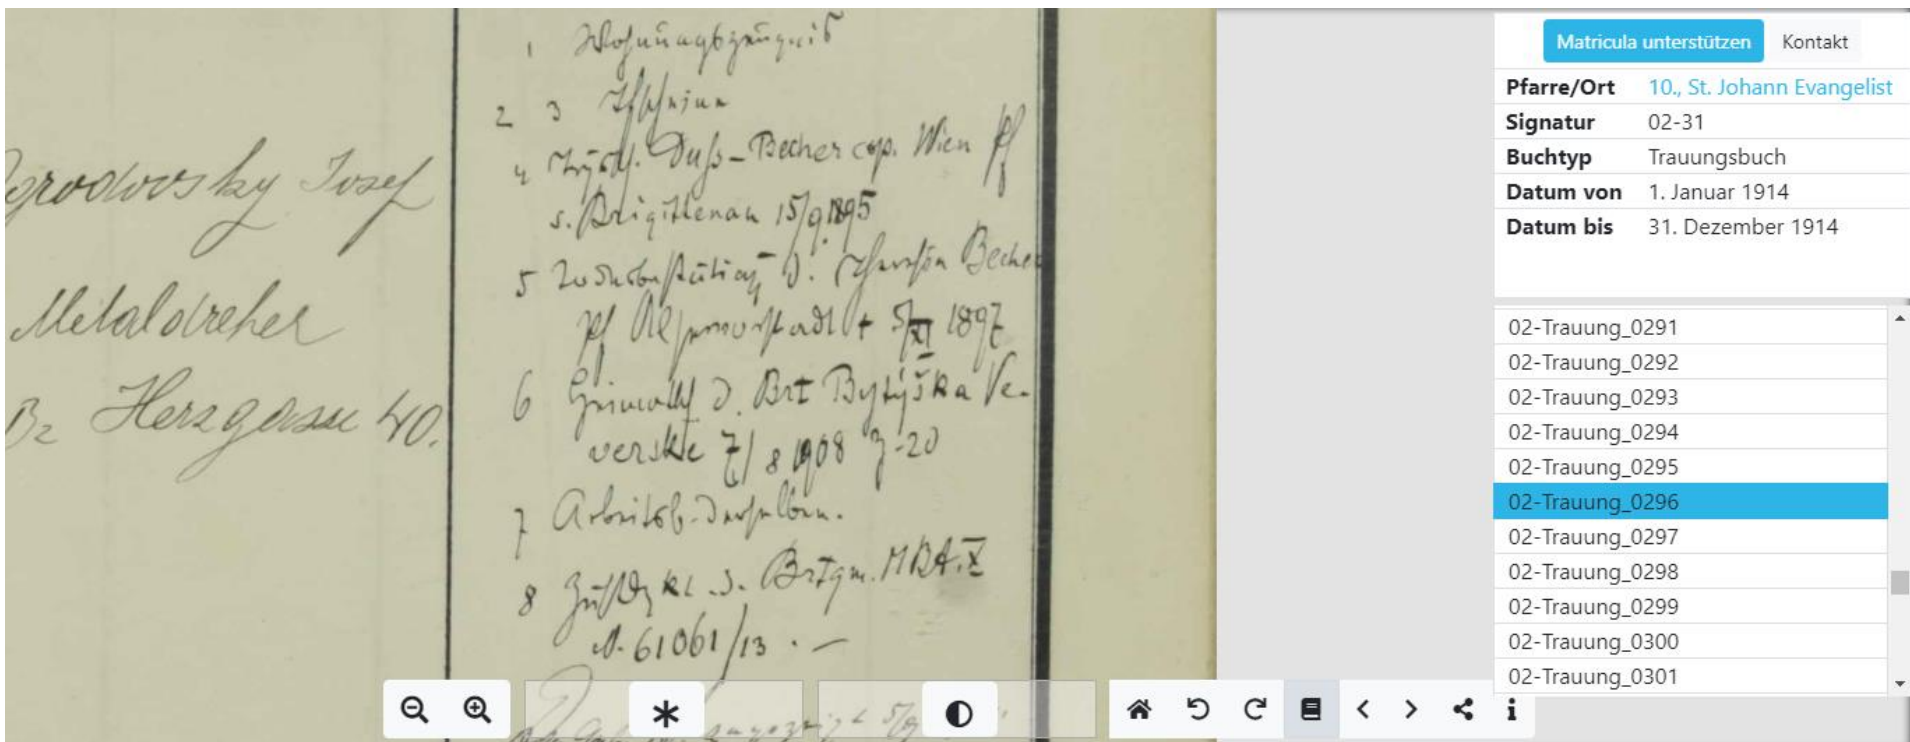 1 Wohnungszeugnis
2 3 Tfscheine
4 Trgsch. Duss-Becher cop. Wien Pf
s. Brigittenau 15/9 1895
5 Todesbestätigg d. Theresia Becher
Pf Alservorstadt + 5/XI 1897
6 Heimatsch d. Brt Bytýška Ve-
verská 7/8 1908 Z. 20
7 Arbeitsb. derselben.
8 Zustdgkt. d. Brtgm. MBA. X
N. 61061/13 . —
Josef
Metaldreher
Bz Herzgasse 40.
Matricula unterstützen Kontakt
Pfarre/Ort 10., St. Johann Evangelist
Signatur 02-31
Buchtyp Trauungsbuch
Datum von 1. Januar 1914
Datum bis 31. Dezember 1914
02-Trauung_0291
02-Trauung_0292
02-Trauung_0293
02-Trauung_0294
02-Trauung_0295
02-Trauung_0296
02-Trauung_0297
02-Trauung_0298
02-Trauung_0299
02-Trauung_0300
02-Trauung_0301